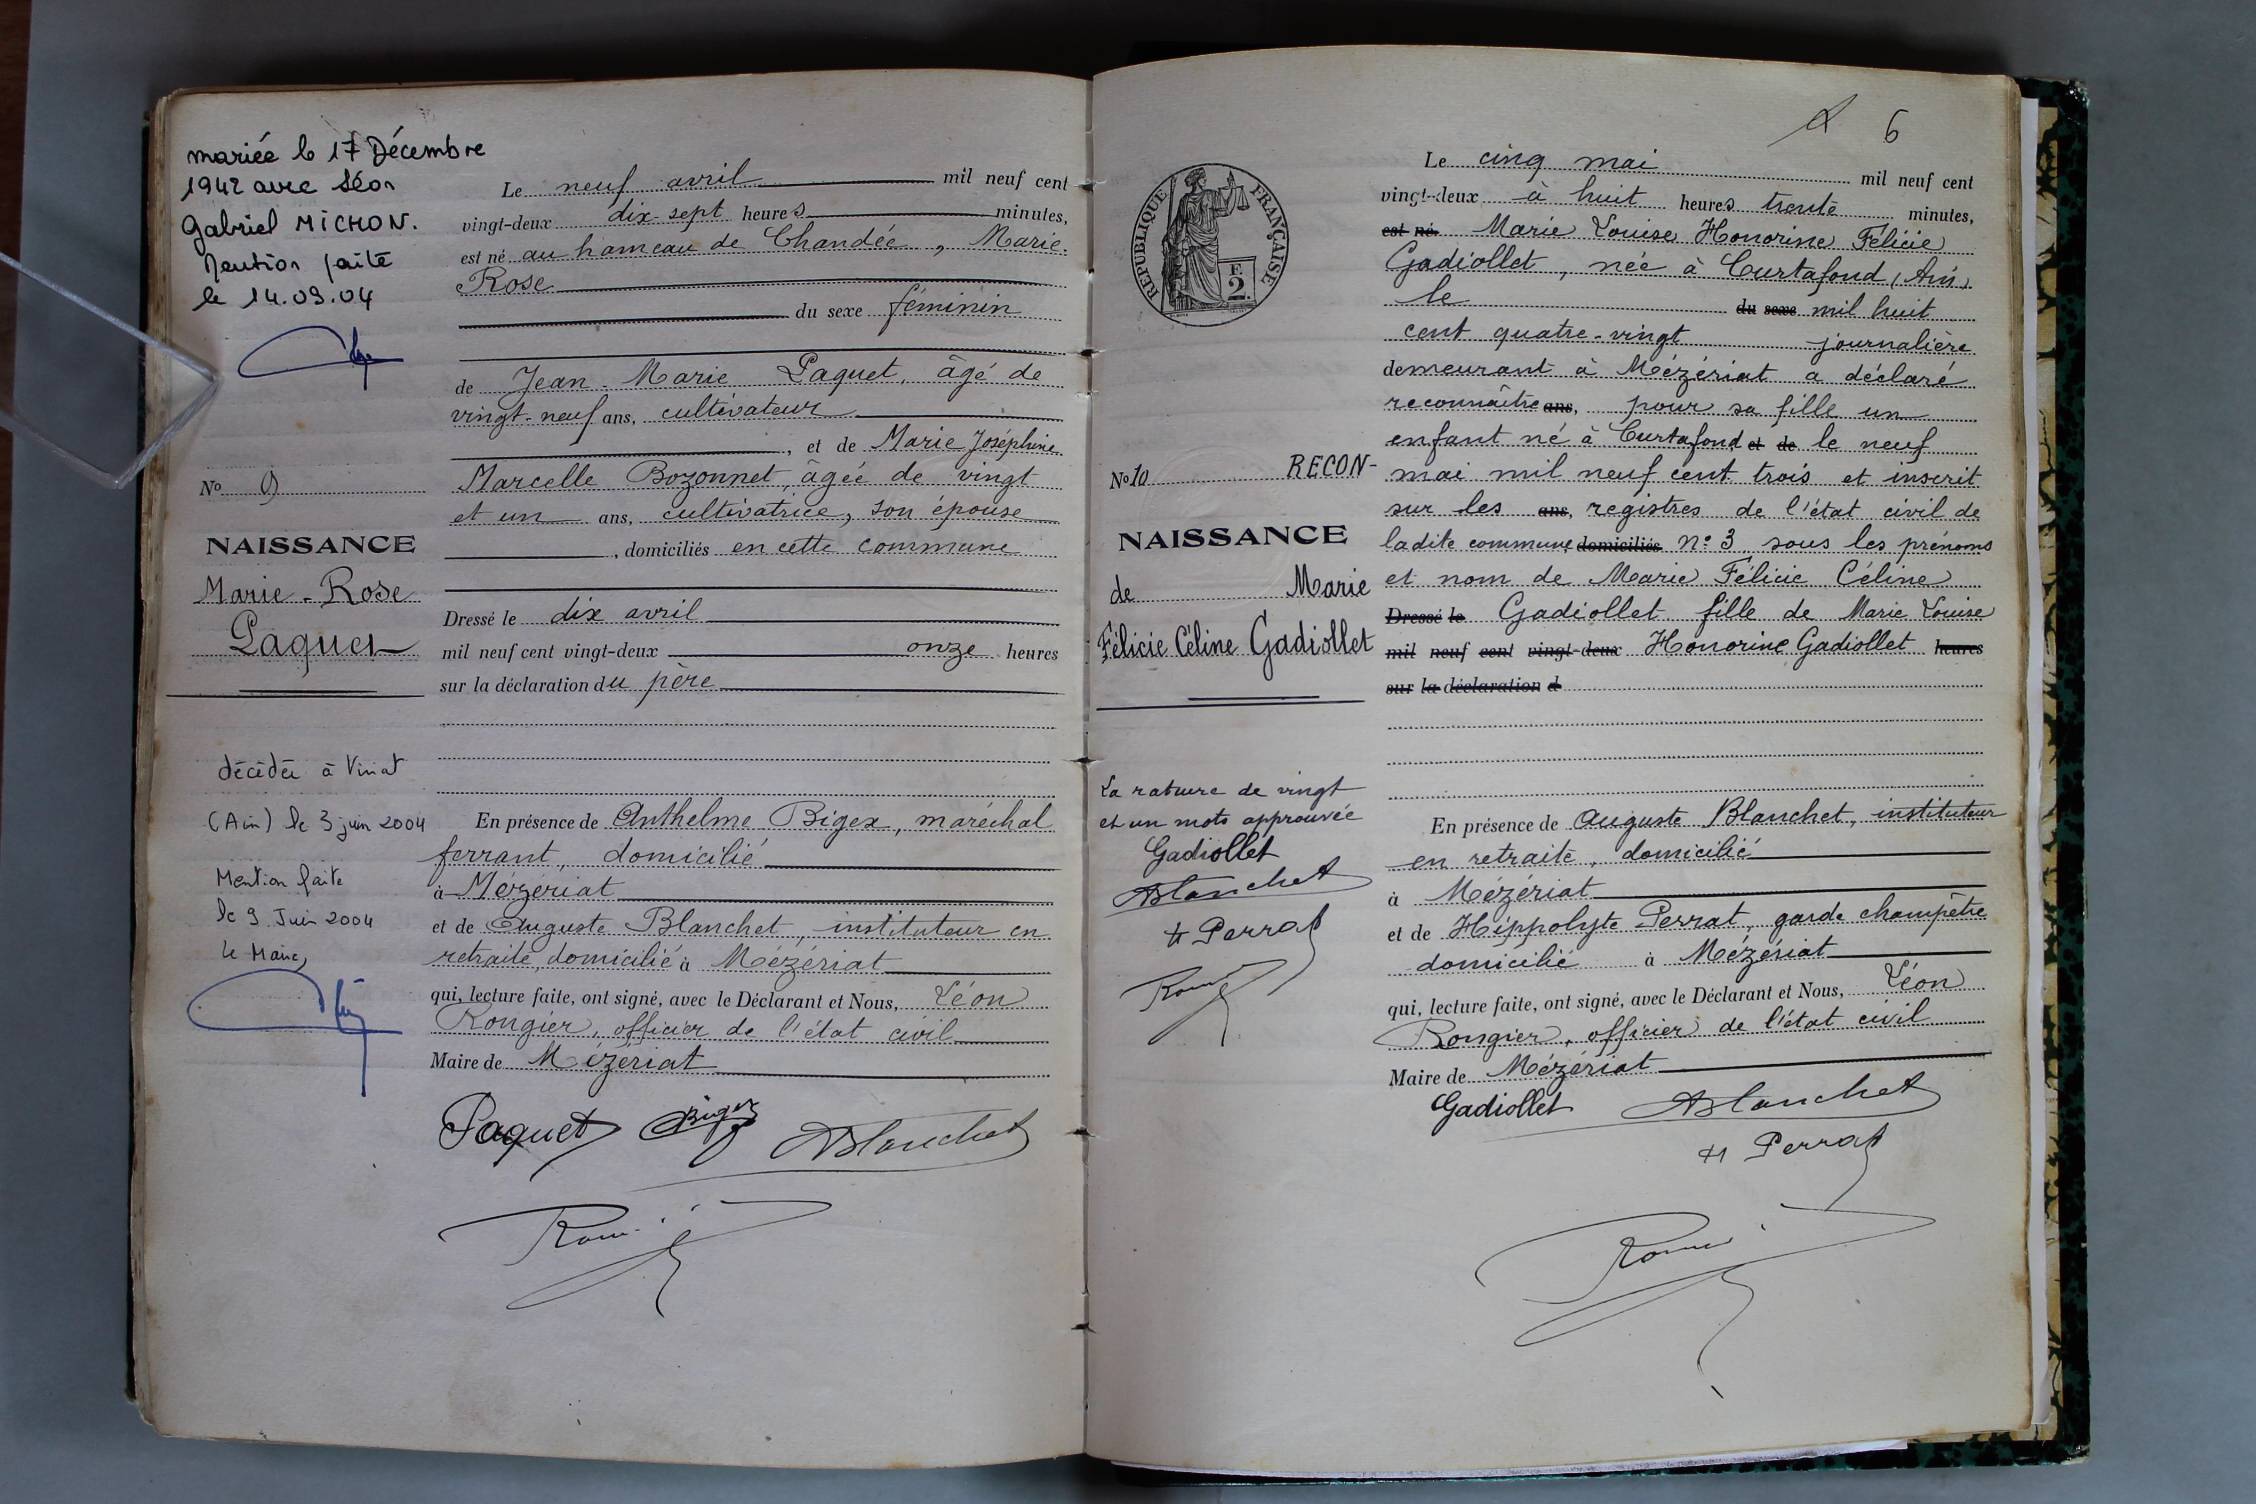 mariée le 17 Décembre
1942 avec Léon
Gabriel MICHON.
Mention faite
le 14.09.04
No 9
NAISSANCE
Marie-Rose
Paquet
décédée à Viriat
(Ain) le 3 juin 2004
Mention faite
le 9 Juin 2004
Le Maire,
Le neuf avril mil neuf cent
vingt-deux dix-sept heures minutes,
est né au hameau de Chandée, Marie
Rose
du sexe féminin
de Jean-Marie Paquet, âgé de
vingt-neuf ans, cultivateur
, et de Marie Joséphine
Marcelle Bozonnet, âgée de vingt
et un ans, cultivatrice, son épouse
, domiciliés en cette commune
Dressé le dix avril
mil neuf cent vingt-deux onze heures
sur la déclaration du père
En présence de Anthelme Bigex, maréchal
ferrant, domicilié
à Mézériat
et de Auguste Blanchet, instituteur en
retraite, domicilié à Mézériat
qui, lecture faite, ont signé, avec le Déclarant et Nous, Léon
Rongier, officier de l'état civil
Maire de Mézériat
Paquet Bigex ABlanchet
6
RÉPUBLIQUE FRANÇAISE
F.
2.
No 10 RECON-
NAISSANCE
de Marie
Félicie Céline Gadiollet
La rature de vingt
et un mots approuvée
Gadiollet
ABlanchet
H Perrat
Le cinq mai mil neuf cent
vingt-deux à huit heures trente minutes,
est né Marie Louise Honorine Félicie
Gadiollet, née à Curtafond (Ain)
le du sexe mil huit
cent quatre-vingt journalière
demeurant à Mézériat a déclaré
reconnaître ans, pour sa fille un
enfant né à Curtafond et de le neuf
mai mil neuf cent trois et inscrit
sur les ans, registres de l'état civil de
ladite commune domiciliés no 3 sous les prénoms
et nom de Marie Félicie Céline
Dressé le Gadiollet fille de Marie Louise
mil neuf cent vingt-deux Honorine Gadiollet heures
sur la déclaration d
En présence de Auguste Blanchet, instituteur
en retraite, domicilié
à Mézériat
et de Hippolyte Perrat, garde champêtre
domicilié à Mézériat
qui, lecture faite, ont signé, avec le Déclarant et Nous, Léon
Rongier, officier de l'état civil
Maire de Mézériat
Gadiollet ABlanchet
H Perrat